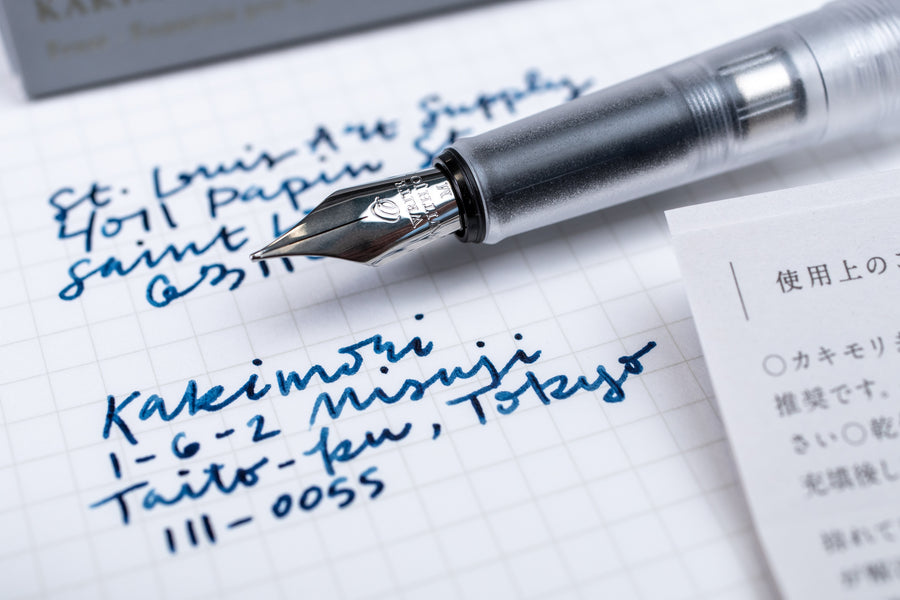 St. Louis Art Supply
4011 Papin St
Saint
631
Kakimori
1-6-2 Misuji
Taito-ku, Tokyo
111-0055
使用上の
○カキモリ
推奨です。
さい○乾
充填後し
晴れて
が